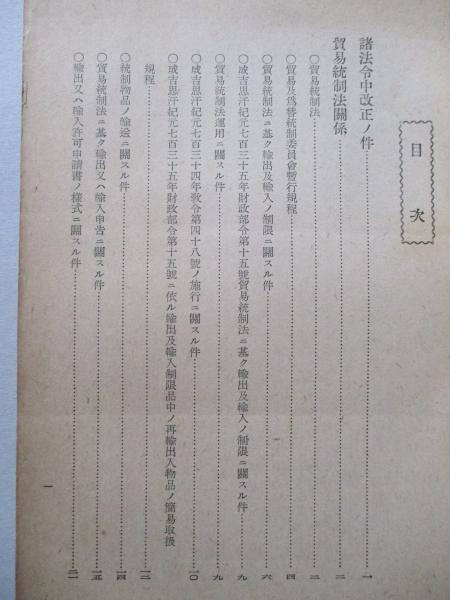 目次
諸法令中改正ノ件……一
貿易統制法關係……二
〇貿易統制法……二
〇貿易及爲替統制委員會暫行規程……四
〇貿易統制法ニ基ク輸出及輸入ノ制限ニ關スル件……六
〇成吉思汗紀元七百三十五年財政部令第十五號貿易統制法ニ基ク輸出及輸入ノ制限ニ關スル件……九
〇貿易統制法運用ニ關スル件……九
〇成吉思汗紀元七百三十四年敎令第四十八號ノ施行ニ關スル件……一〇
〇成吉思汗紀元七百三十五年財政部令第十五號ニ依ル輸出及輸入制限品中ノ再輸出入物品ノ簡易取扱
規程……一二
〇統制物品ノ輸送ニ關スル件……一四
〇貿易統制法ニ基ク輸出又ハ輸入申告ニ關スル件……一五
〇輸出又ハ輸入許可申請書ノ樣式ニ關スル件……二一
一